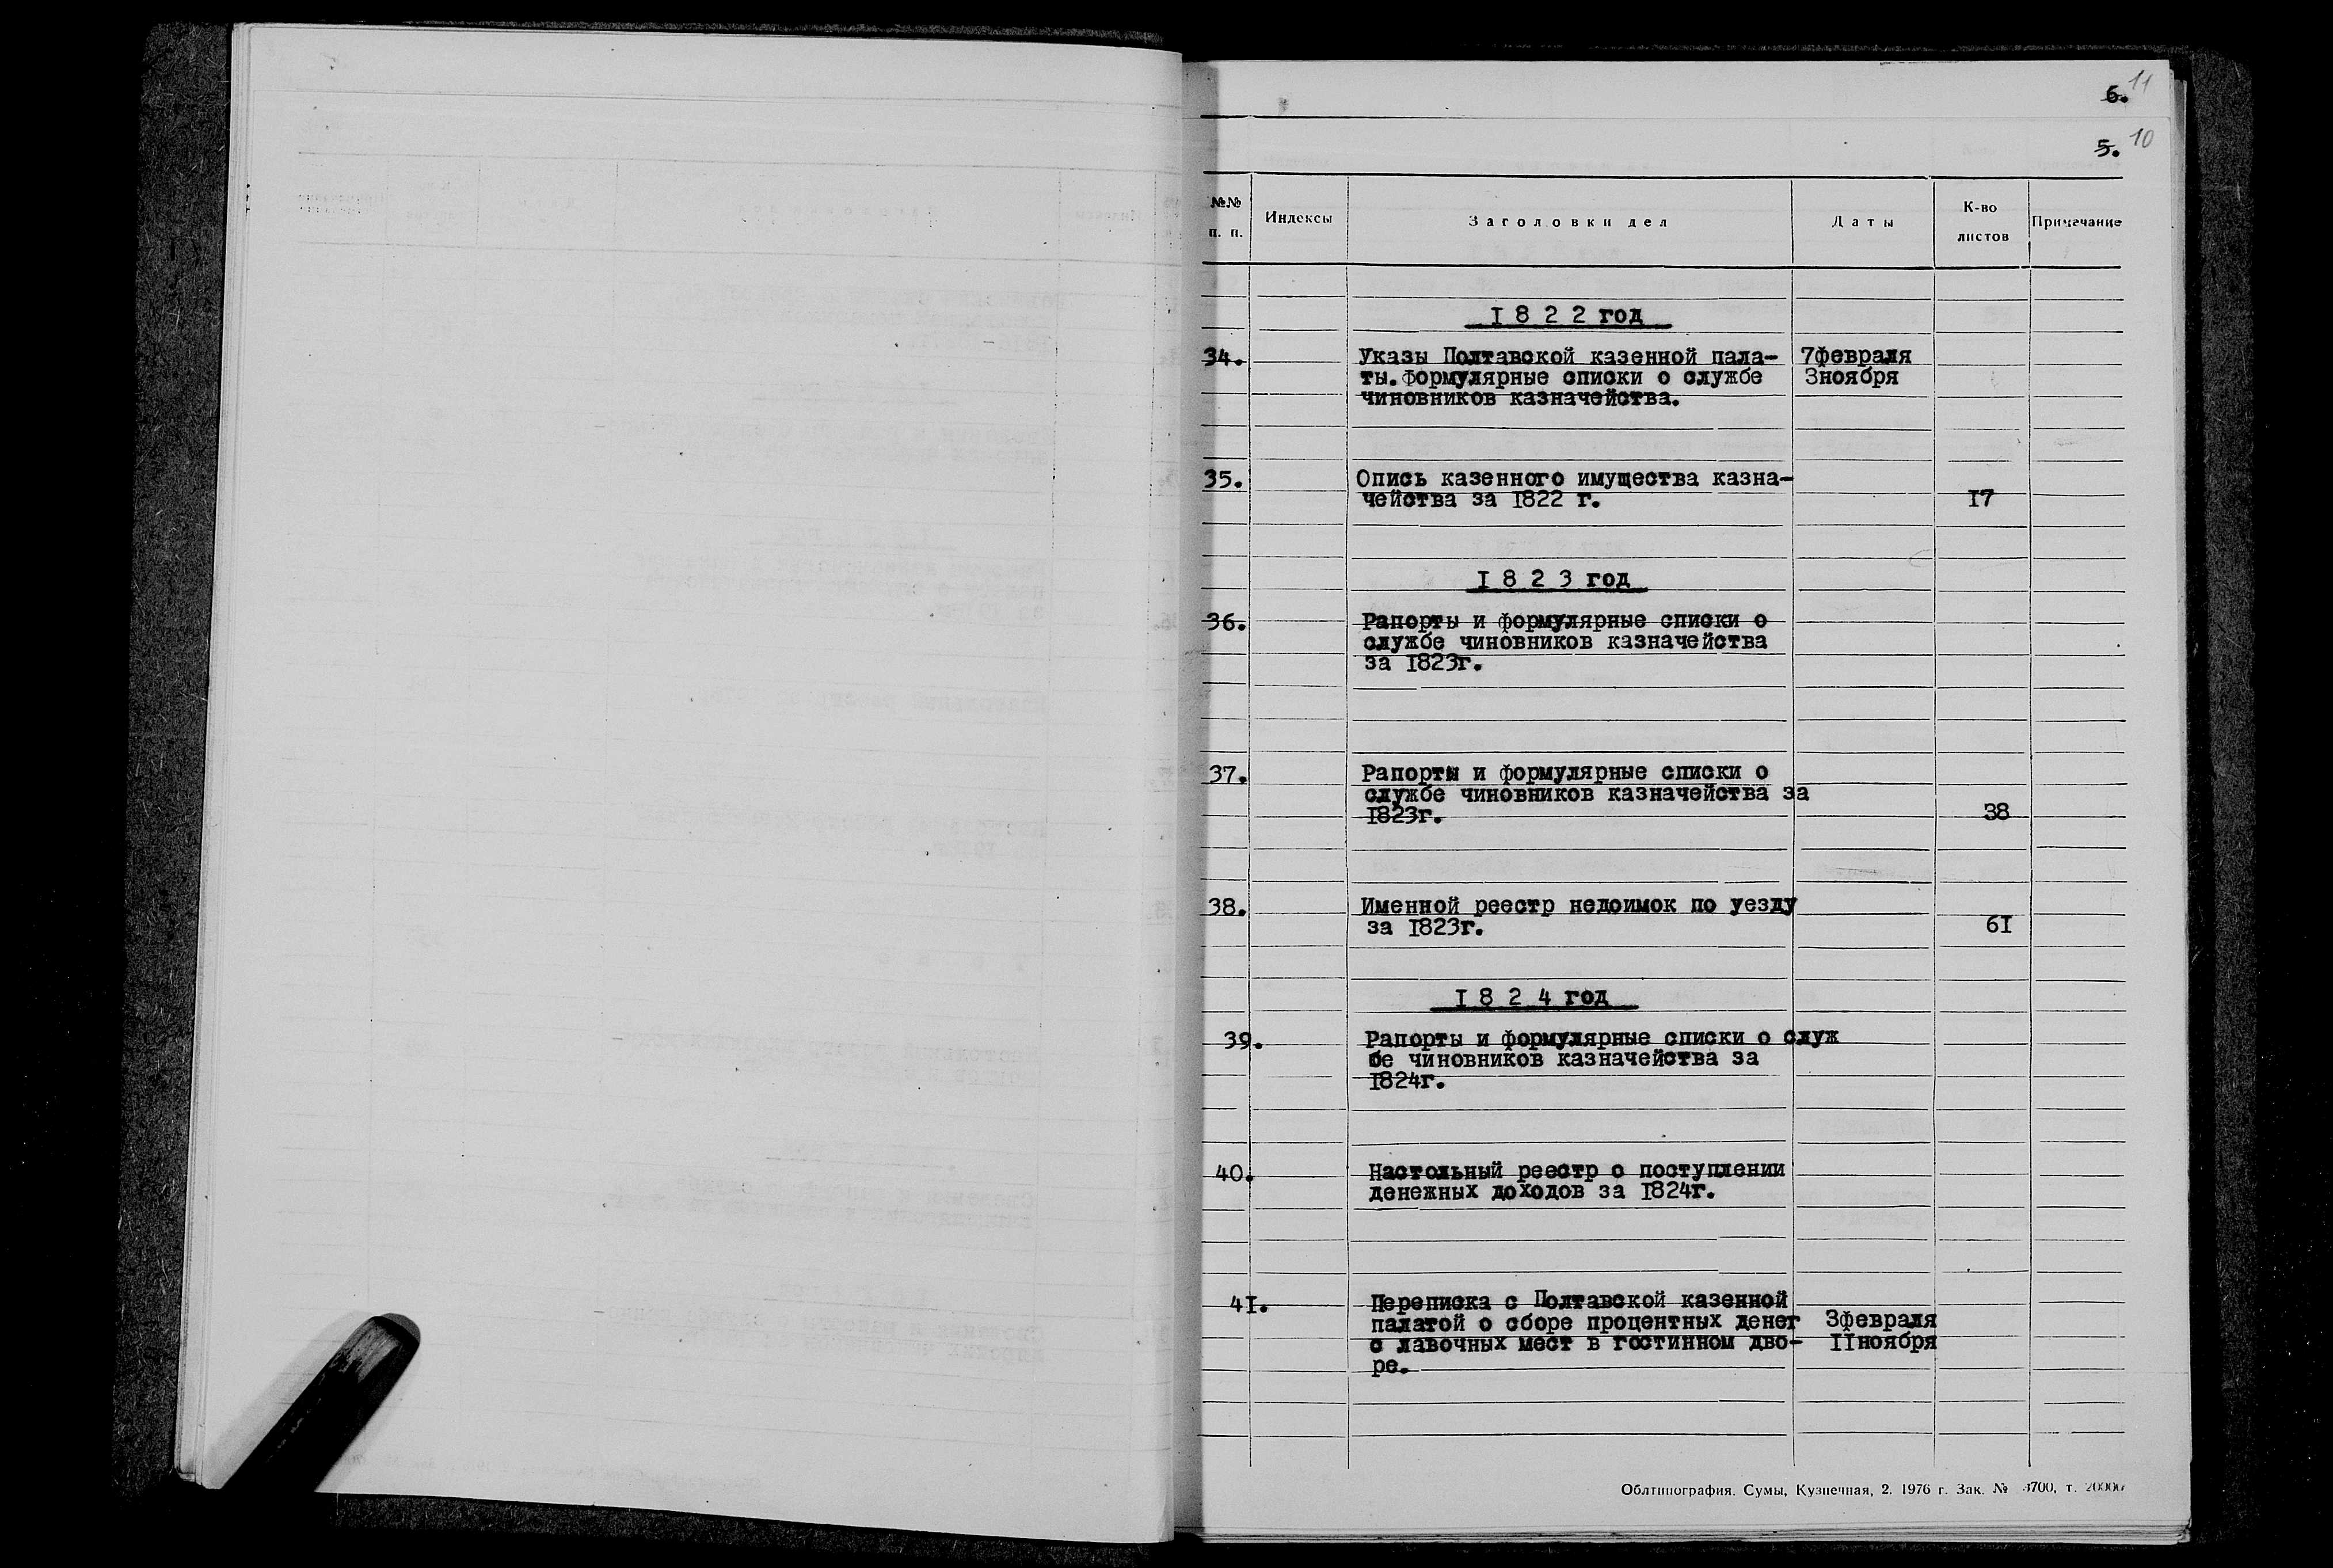 6. 11
5. 10
№№ п. п. Индексы Заголовки дел Даты К-во листов Примечание
1822 год
34. Указы Полтавской казенной пала- 7февраля
ты. Формулярные списки о службе 3ноября
чиновников казначейства.
35. Опись казенного имущества казна-
чейства за 1822 г. 17
1823 год
36. Рапорты и формулярные списки о
службе чиновников казначейства
за 1823г.
37. Рапорты и формулярные списки о
службе чиновников казначейства за
1823г. 38
38. Именной реестр недоимок по уезду
за 1823г. 61
1824 год
39. Рапорты и формулярные списки о служ
бе чиновников казначейства за
1824г.
40. Настольный реестр о поступлении
денежных доходов за 1824г.
41. Переписка с Полтавской казенной
палатой о сборе процентных денег 3февраля
с лавочных мест в гостинном дво- 11ноября
ре.
Облтипография. Сумы, Кузнечная, 2. 1976 г. Зак. № 3700, т. 20000